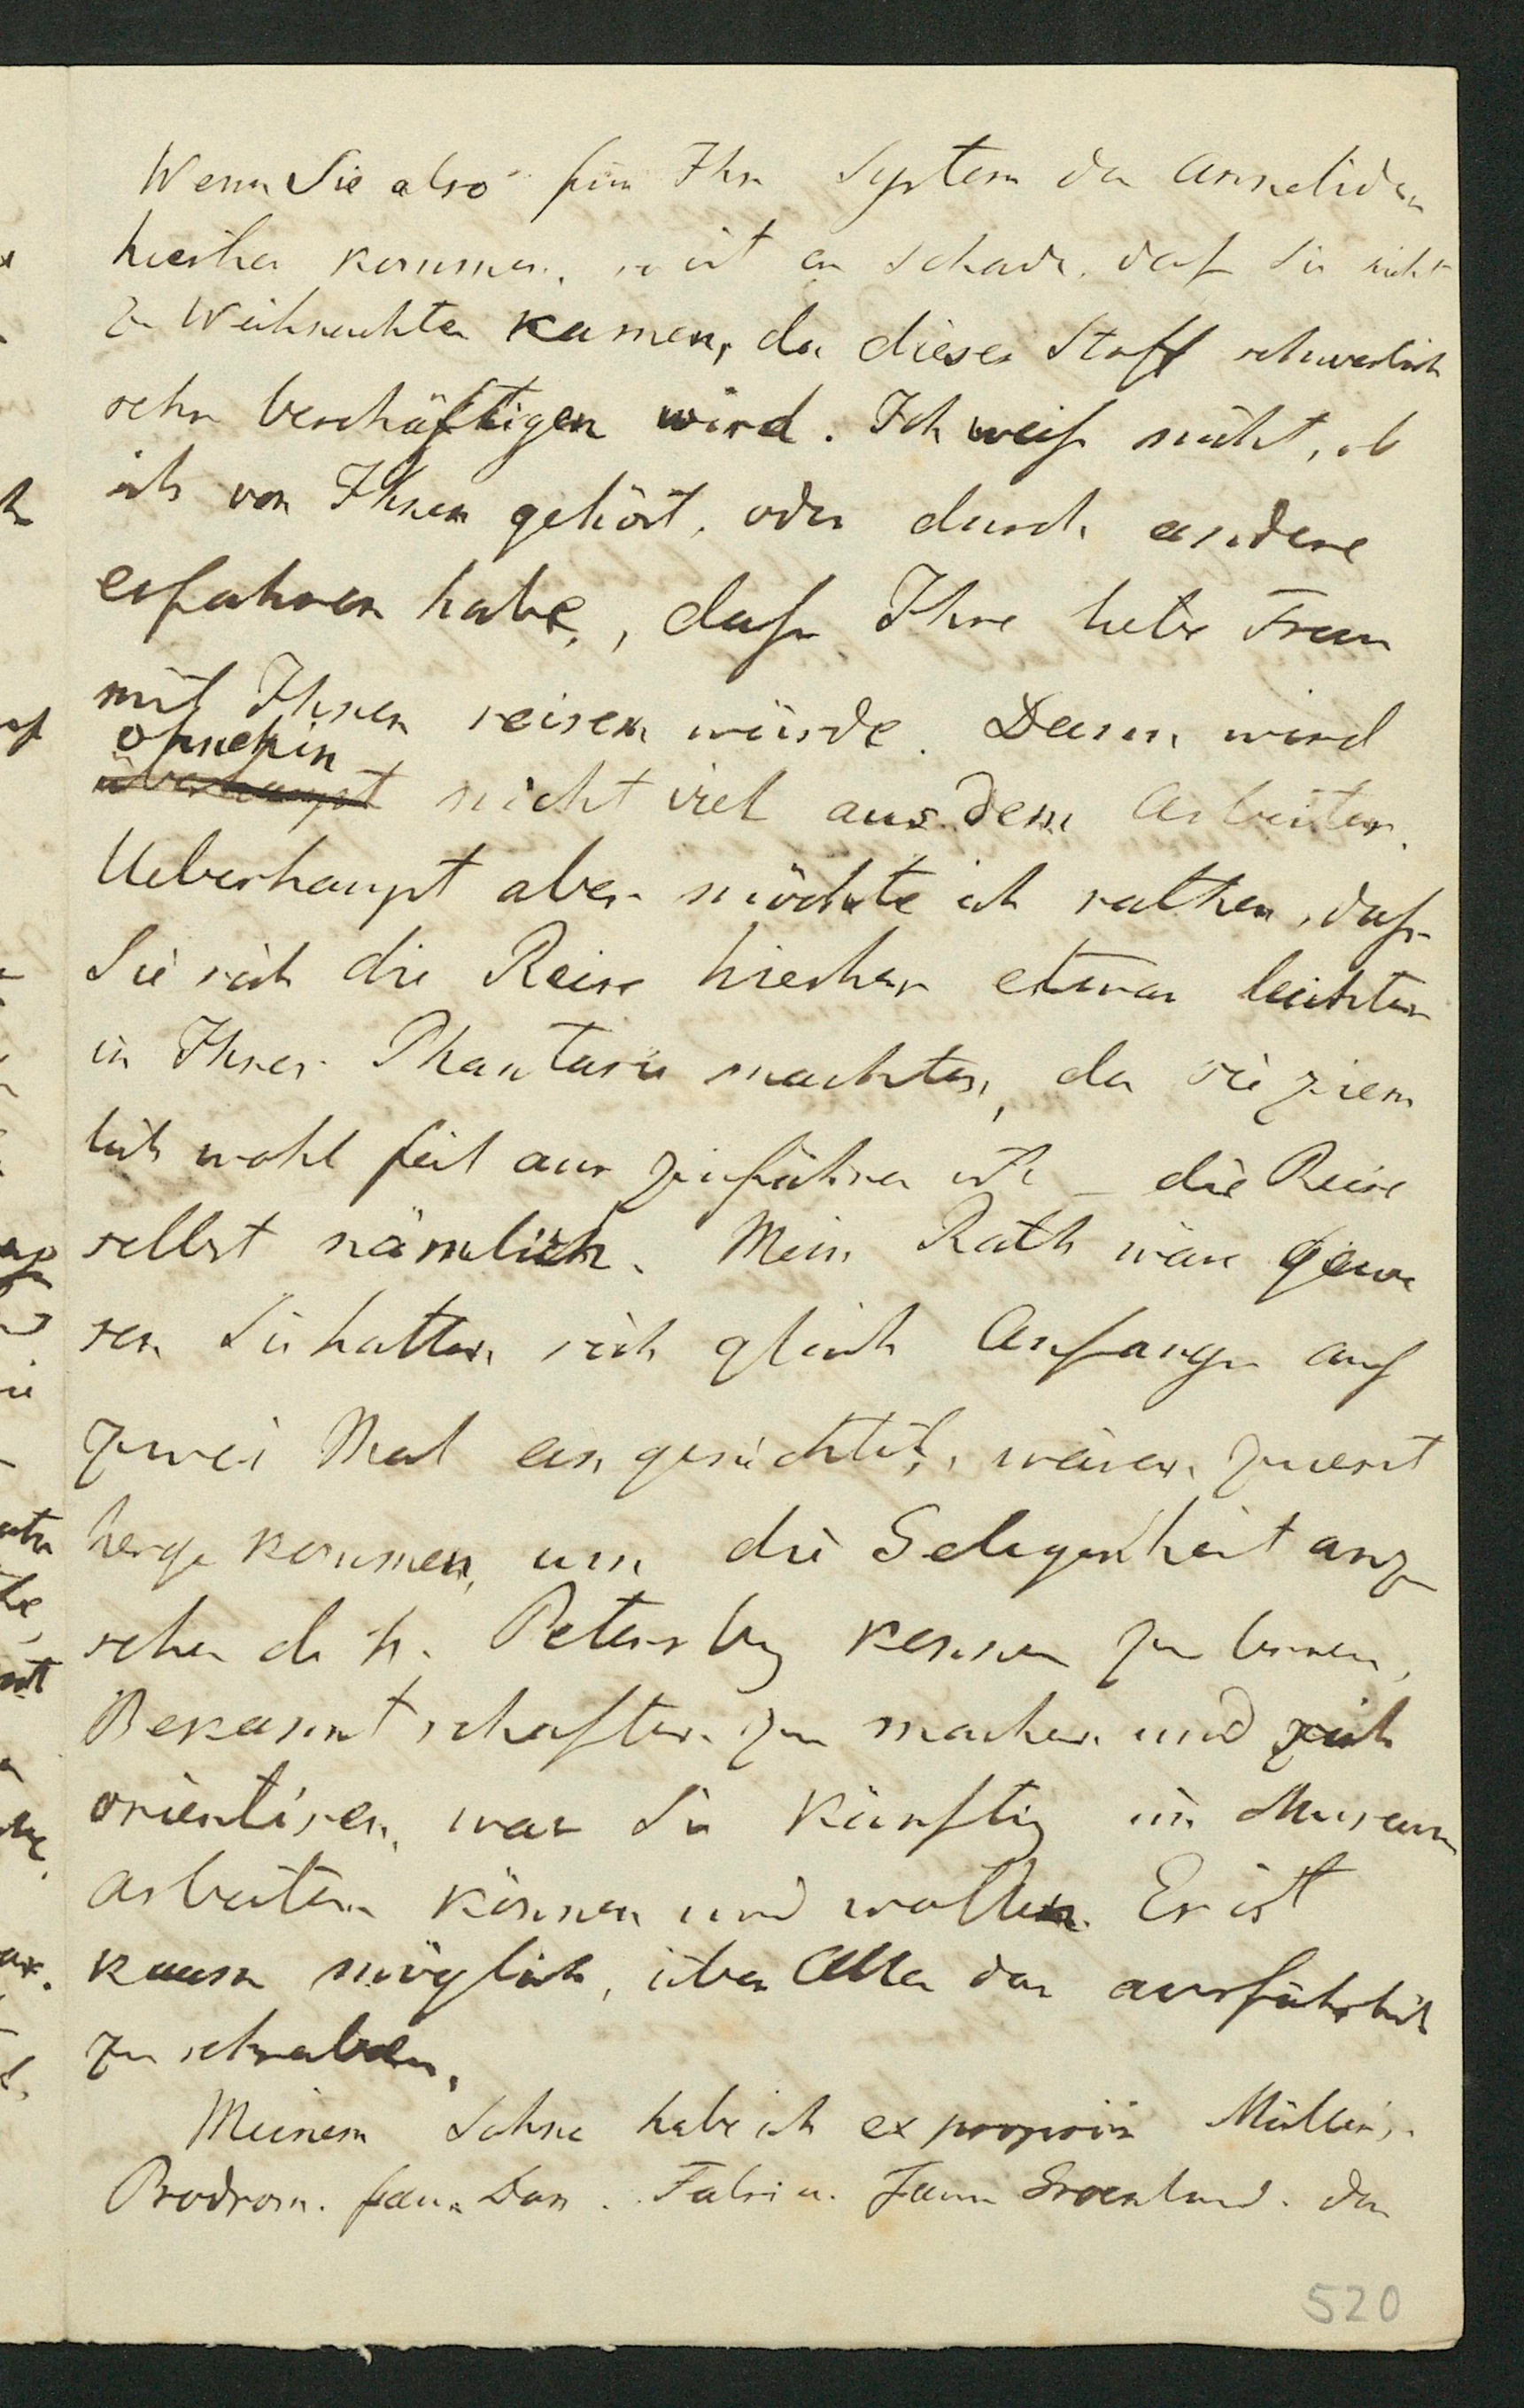 Wenn Sie also für Ihr System der Anneliden
hierher kommen, so ist es Schade, daß Sie nicht
zu Weihnachten kamen, da dieser Stoff schwerlich
sehr beschäftigen wird. Ich weiß nicht, ob
ich von Ihnen gehört, oder durch andere
erfahren habe, daß Ihre liebe Frau
mit Ihnen reisen würde. Dann wird
ohnehin
überhaupt nicht viel aus dem Arbeiten.
Ueberhaupt aber möchte ich rathen, daß
Sie sich die Reise hierher etwas leichter
in Ihrer Phantasie machten, da sie ziem
lich wohl feil auszuführen ist – die Reise
selbst nämlich. Mein Rath wäre gewe
sen Sie hätten sich gleich Anfangs auf
zwei Mal eingerichtet, wären zuerst
herge kommen, um die Gelegenheit anzu
sehen d. h. Petersburg kennen zu lernen,
Bekanntschaften zu machen und sich
orientiren, was Sie künftig im Museum
arbeiten können und wollen. Es ist
kaum möglich, über Alles das ausführlich
zu schreiben.
Meinem Sohne habe ich ex propriis Müller's
Prodrom. faun. Dan. Fabric. Faun Groenland. das
520